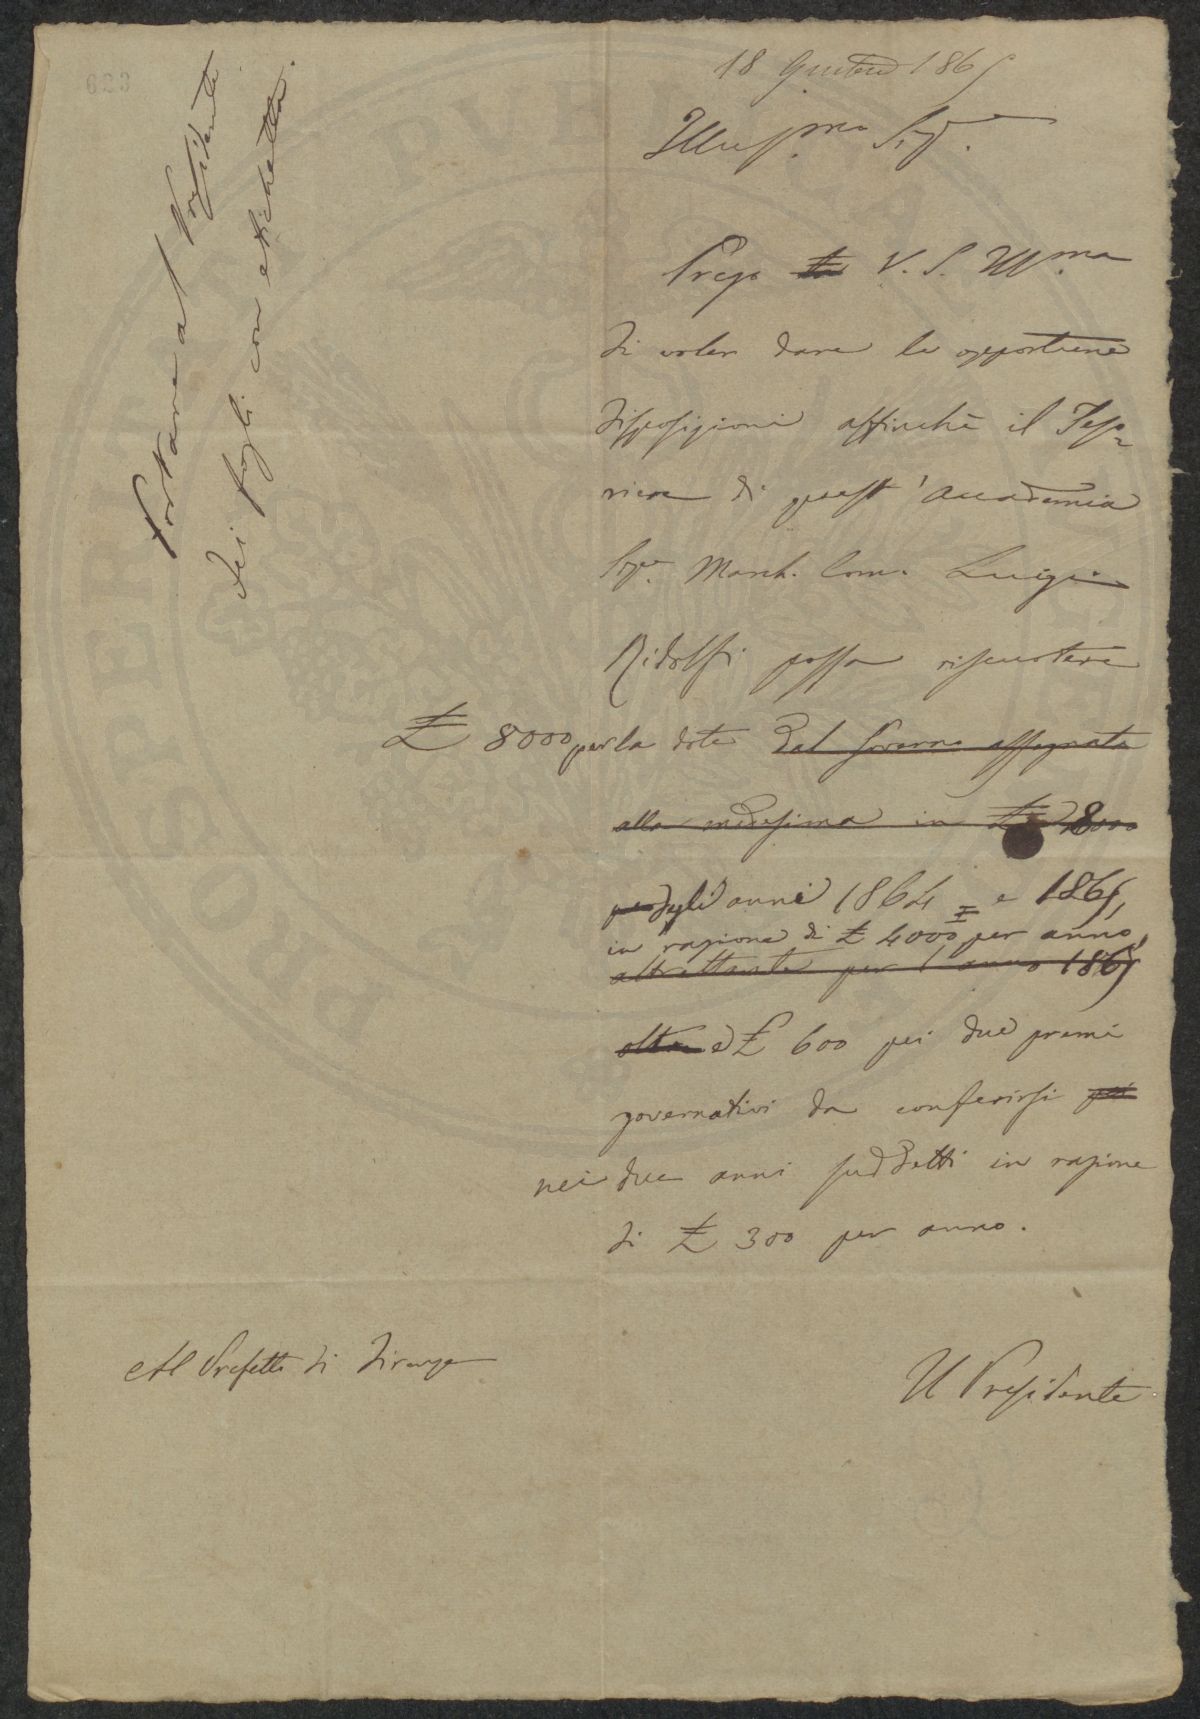 623
Portare al Presidente
dei fogli con etichetta.
18 1865
Illus.mo Sig.
Prego la V. S. Ill.ma
di voler dare le opportune
disposizioni affinchè il Teso=
riere di quest'Accademia
Sig.r March. Com. Luigi
Ridolfi possa riscuotere
£ 8000 per la dote dal Governo assegnata
alla medesima in £ 8000
per gli anni 1864 e 1865,
in ragione di £ 4000 per anno,
altrettante per l'anno 1865
oltre e £ 600 pei due premi
governativi da conferirsi pei
nei due anni suddetti in ragione
di £ 300 per anno.
Al Prefetto di Firenze
Il Presidente